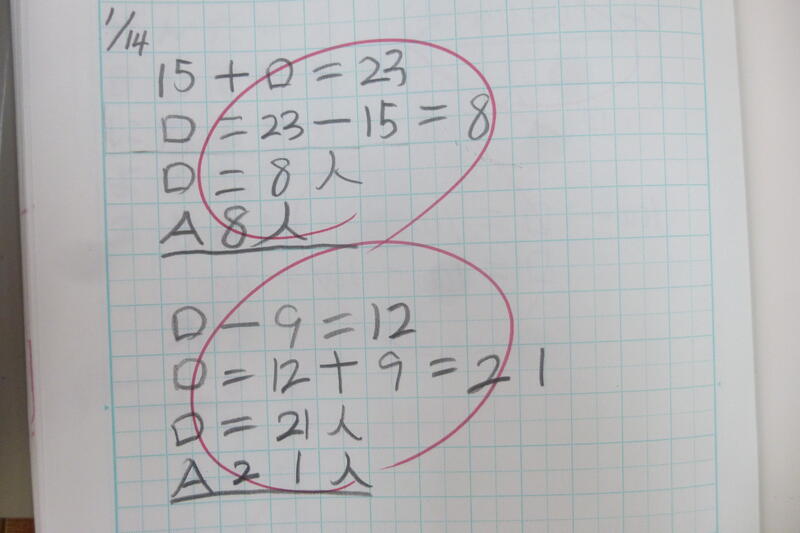 1/14
15 + □ = 23
□ = 23 - 15 = 8
□ = 8 人
A 8 人
□ - 9 = 12
□ = 12 + 9 = 21
□ = 21 人
A 21 人